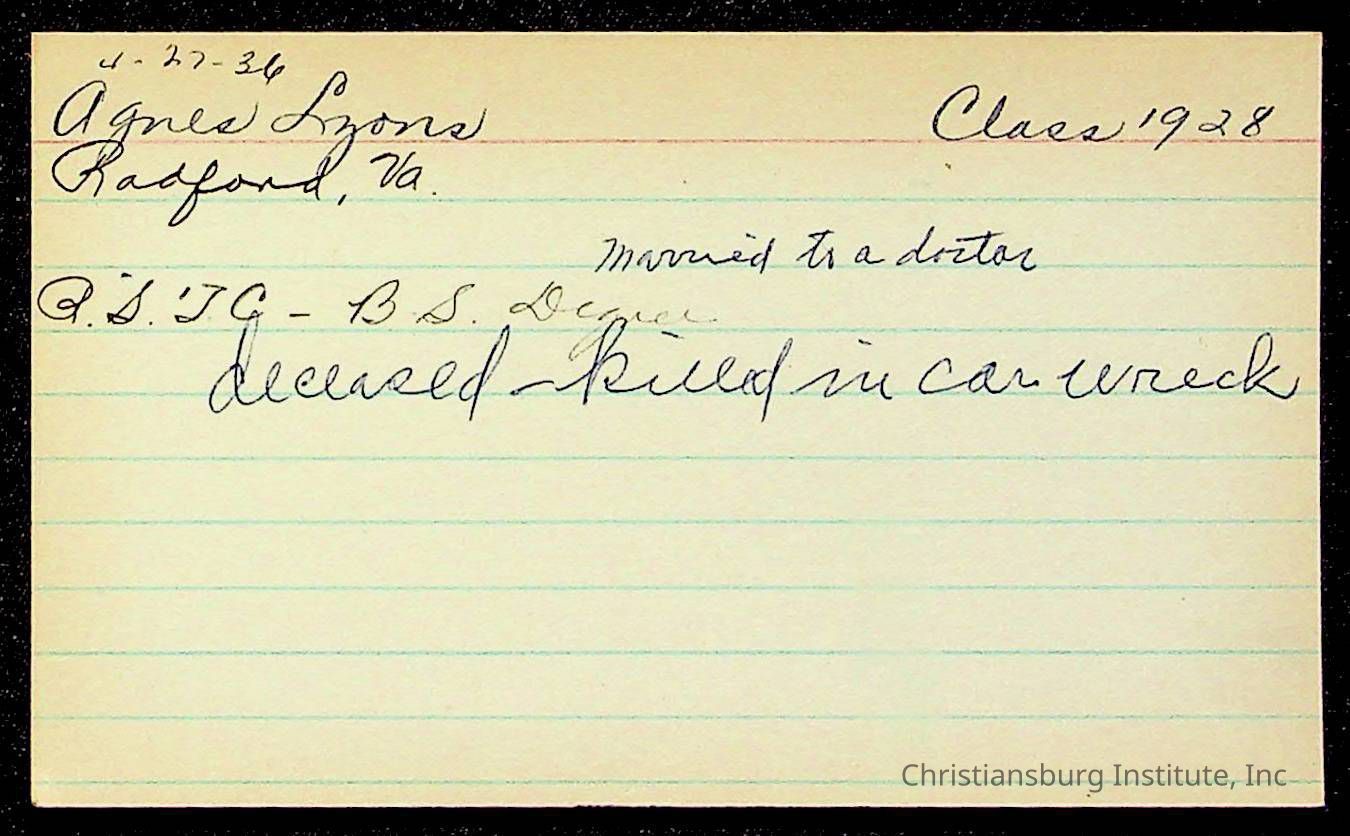 4-27-36
Agnes Lyons Class 1928
Radford, Va.
Married to a doctor
R.S.T.C - B S. Degree
deceased - killed in car wreck
Christiansburg Institute, Inc